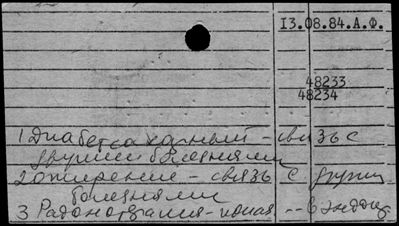 13.08.84.А.Ф.
48233
48234
1 Диабет сахарный - связь с
другими болезнями
2 ожирение - связь с други
болезнями
3 Радонотерапия - -- в эндокр